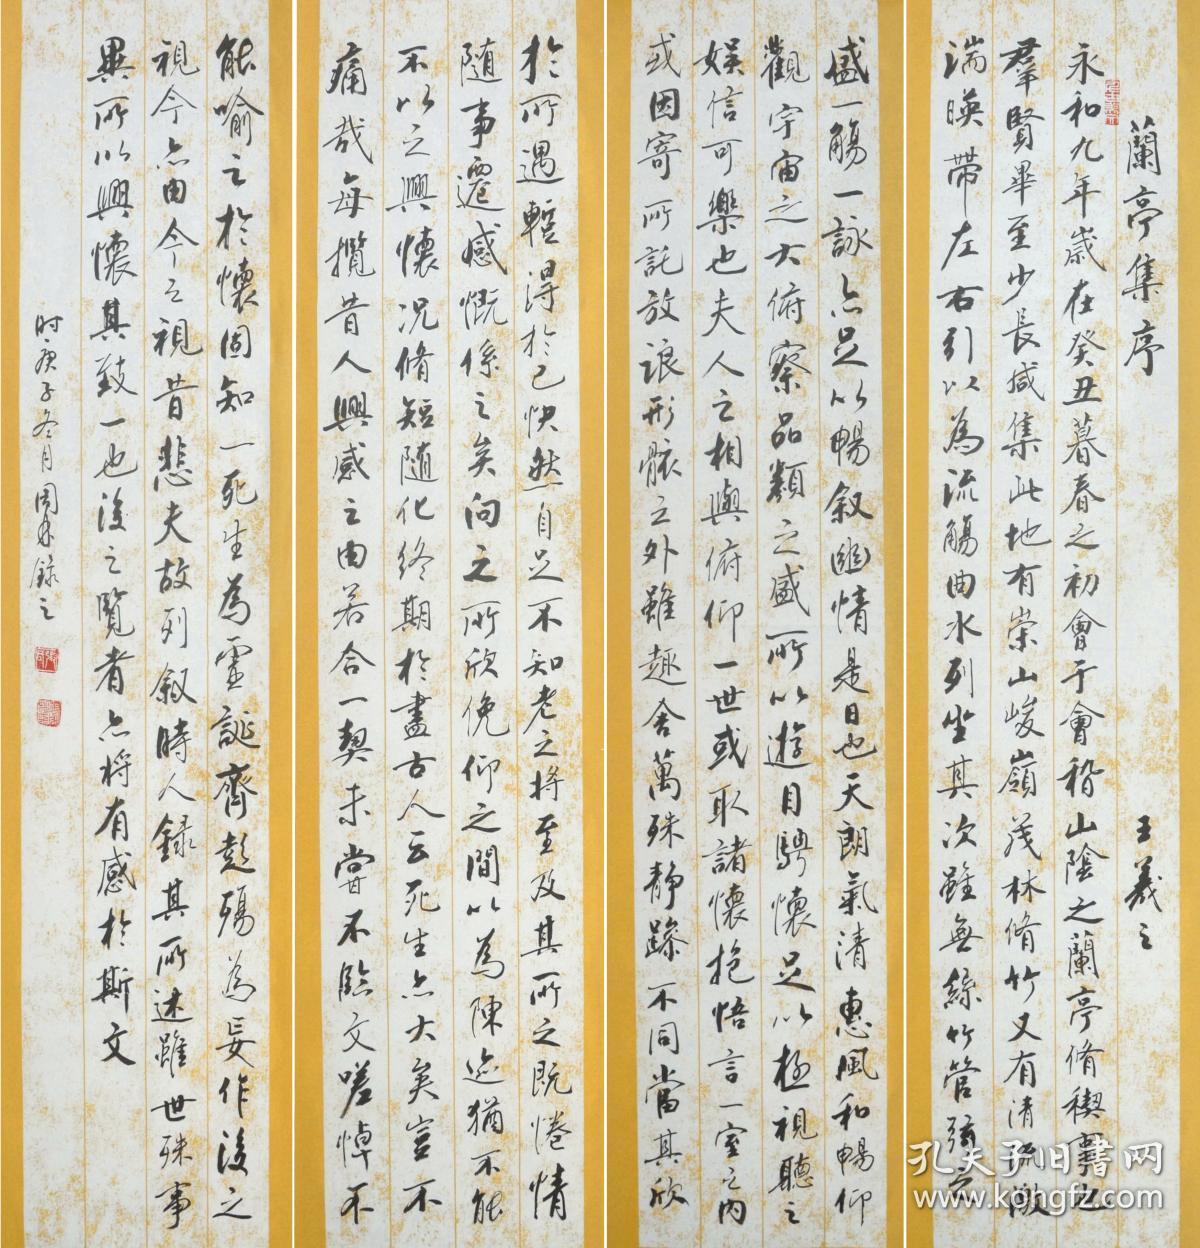 蘭亭集序 王羲之
永和九年歲在癸丑暮春之初會于會稽山陰之蘭亭脩稧事也
羣賢畢至少長咸集此地有崇山峻嶺茂林脩竹又有清流激
湍暎帶左右引以為流觴曲水列坐其次雖無絲竹管弦之
盛一觴一詠亦足以暢叙幽情是日也天朗氣清惠風和暢仰
觀宇宙之大俯察品類之盛所以遊目騁懷足以極視聽之
娛信可樂也夫人之相與俯仰一世或取諸懷抱悟言一室之內
或因寄所託放浪形骸之外雖趣舍萬殊靜躁不同當其欣
於所遇蹔得於己快然自足不知老之將至及其所之既惓情
隨事遷感慨係之矣向之所欣俛仰之間以為陳迹猶不能
不以之興懷況脩短隨化終期於盡古人云死生亦大矣豈不
痛哉每攬昔人興感之由若合一契未嘗不臨文嗟悼不
能喻之於懷固知一死生為虛誕齊彭殤為妄作後之
視今亦由今之視昔悲夫故列叙時人錄其所述雖世殊事
異所以興懷其致一也後之覽者亦將有感於斯文
时庚子冬月周錄之
孔夫子旧书网
www.kongfz.com